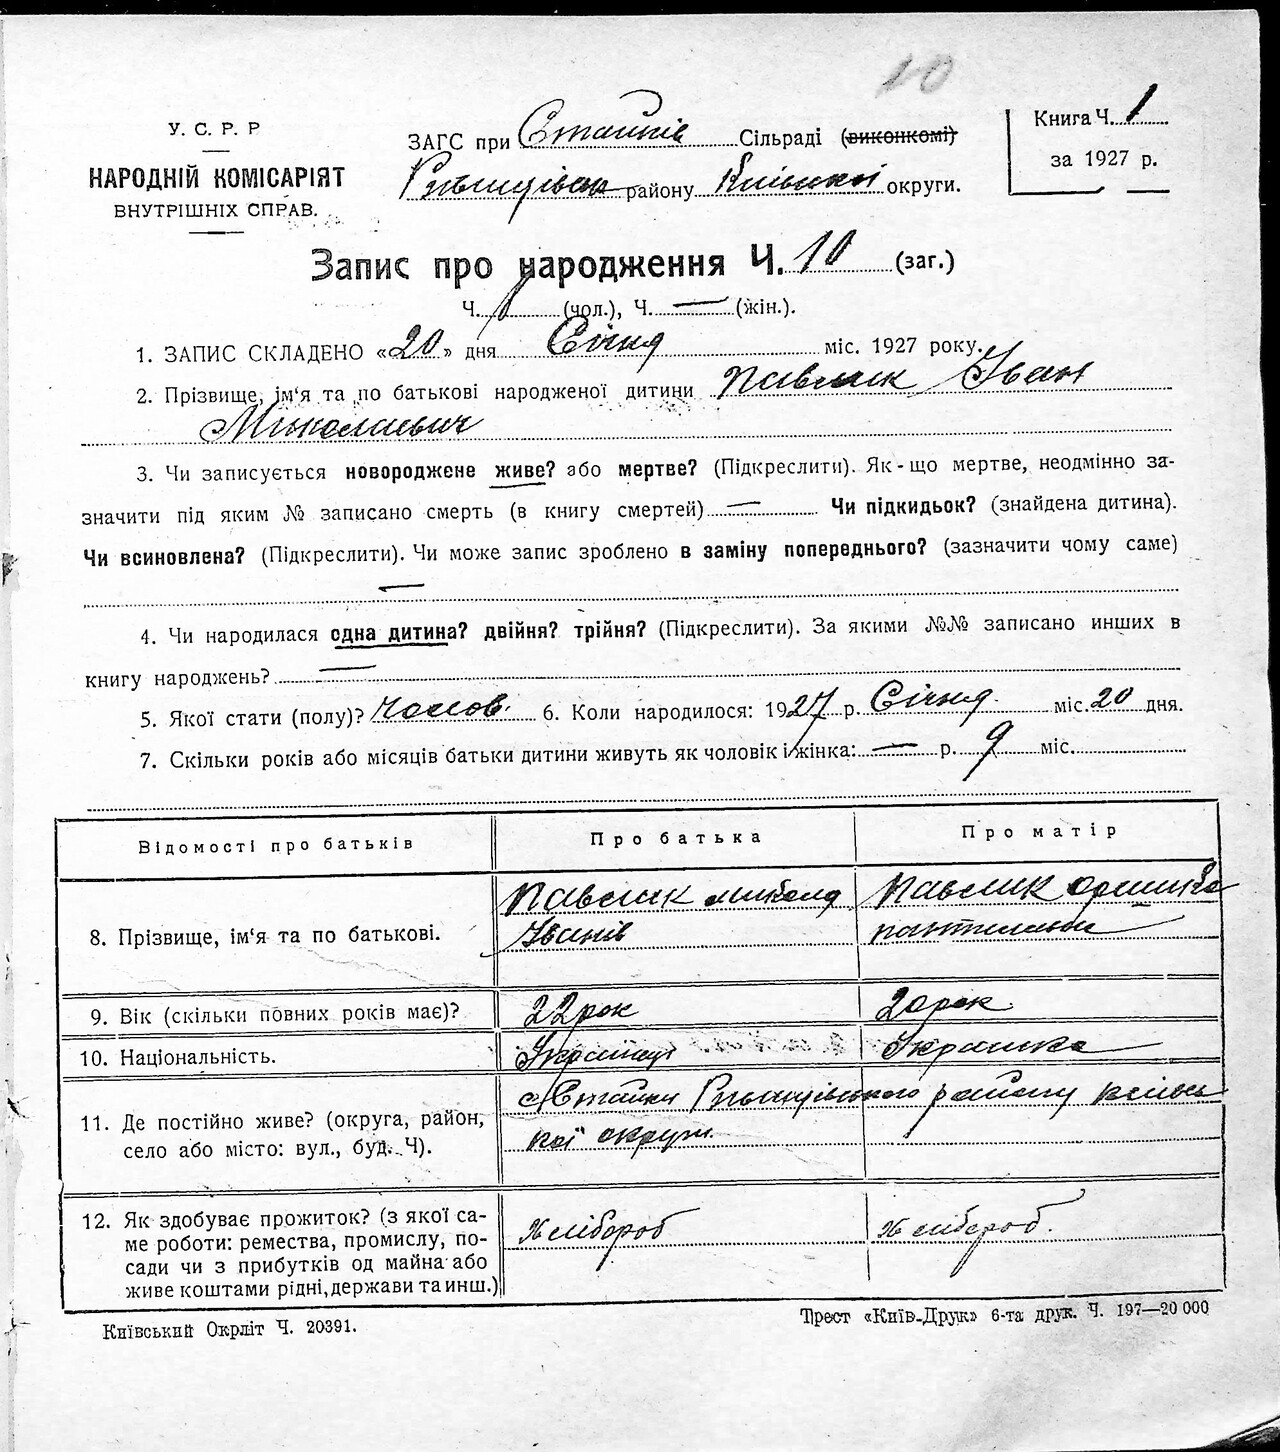 10
У. С. Р. Р
НАРОДНІЙ КОМІСАРІЯТ
ВНУТРІШНІХ СПРАВ.
ЗАГС при Стайків Сільраді (виконкомі)
Ржищівськ району Київської округи.
Книга Ч. 1
за 1927 р.
Запис про народження Ч. 10 (заг.)
Ч. 9 (чол.), Ч. — (жін.).
1. ЗАПИС СКЛАДЕНО «20» дня Січня міс. 1927 року.
2. Прізвище, ім'я та по батькові народженої дитини Павлик Іван
Миколаєвич
3. Чи записується новороджене живе? або мертве? (Підкреслити). Як-що мертве, неодмінно за-
значити під яким № записано смерть (в книгу смертей) — Чи підкидьок? (знайдена дитина).
Чи всиновлена? (Підкреслити). Чи може запис зроблено в заміну попереднього? (зазначити чому саме)
—
4. Чи народилася одна дитина? двійня? трійня? (Підкреслити). За якими №№ записано инших в
книгу народжень? —
5. Якої стати (полу)? Чолов. 6. Коли народилося: 1927 р. Січня міс. 20 дня.
7. Скільки років або місяців батьки дитини живуть як чоловік і жінка: — р. 9 міс.
Відомості про батьків Про батька Про матір
8. Прізвище, ім'я та по батькові.
Павлик Микола
Іванів
Павлик Оришка
Пантилівна
9. Вік (скільки повних років має)? 22 рок 20 рок
10. Національність. Українець Українка
11. Де постійно живе? (округа, район,
село або місто: вул., буд. Ч).
с. Стайки Ржищівського району Київсь
кої округи
12. Як здобуває прожиток? (з якої са-
ме роботи: ремества, промислу, по-
сади чи з прибутків од майна або
живе коштами рідні, держави та инш.)
Хлібороб Хлібороб.
Київський Окрліт Ч. 20391.
Трест «Київ-Друк» 6-та друк. Ч. 197—20 000